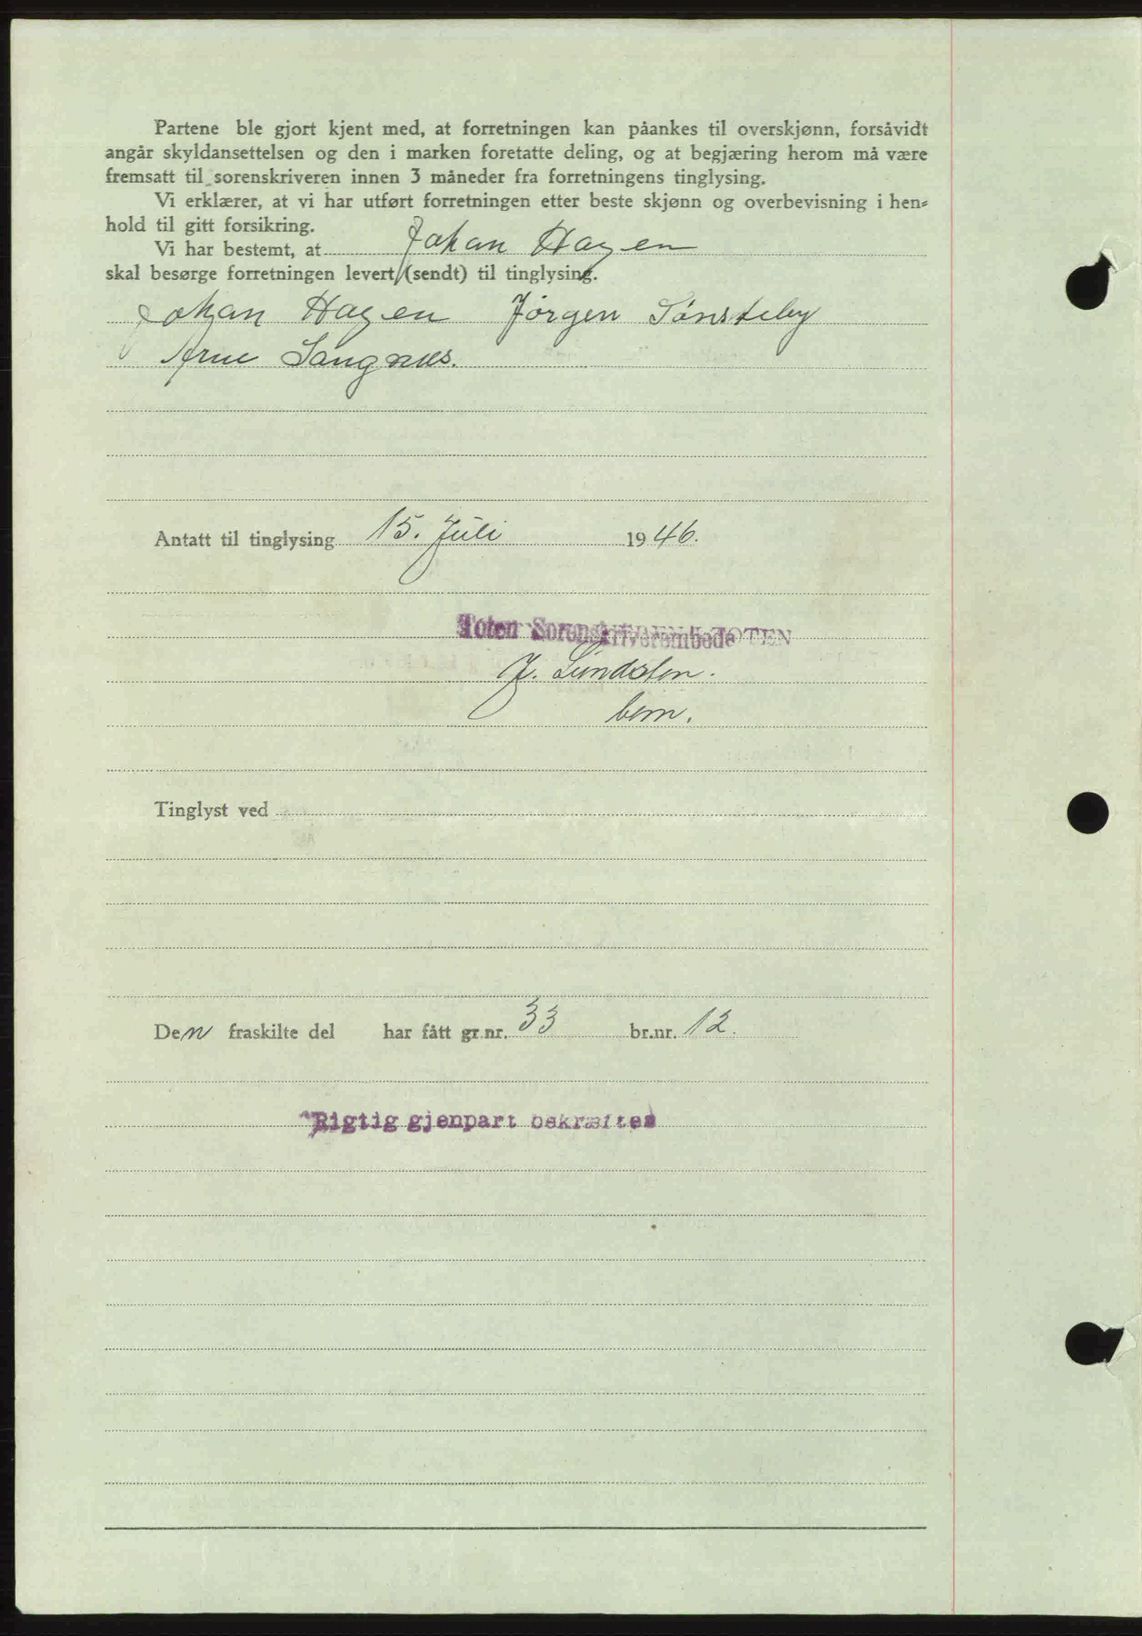 Partene ble gjort kjent med, at forretningen kan påankes til overskjønn, forsåvidt
angår skyldansettelsen og den i marken foretatte deling, og at begjæring herom må være
fremsatt til sorenskriveren innen 3 måneder fra forretningens tinglysing.
Vi erklærer, at vi har utført forretningen etter beste skjønn og overbevisning i hen-
hold til gitt forsikring.
Vi har bestemt, at Johan Hagen
skal besørge forretningen levert/(sendt) til tinglysing.
Johan Hagen Jørgen Sønsteby
Arne Sangnæs.
Antatt til tinglysing 15. Juli 1946.
Toten Sorenskriverembede TOTEN
J. Lundsten.
bem.
Tinglyst ved
Den fraskilte del har fått gr.nr. 33 br.nr. 12.
Rigtig gjenpart bekræftes